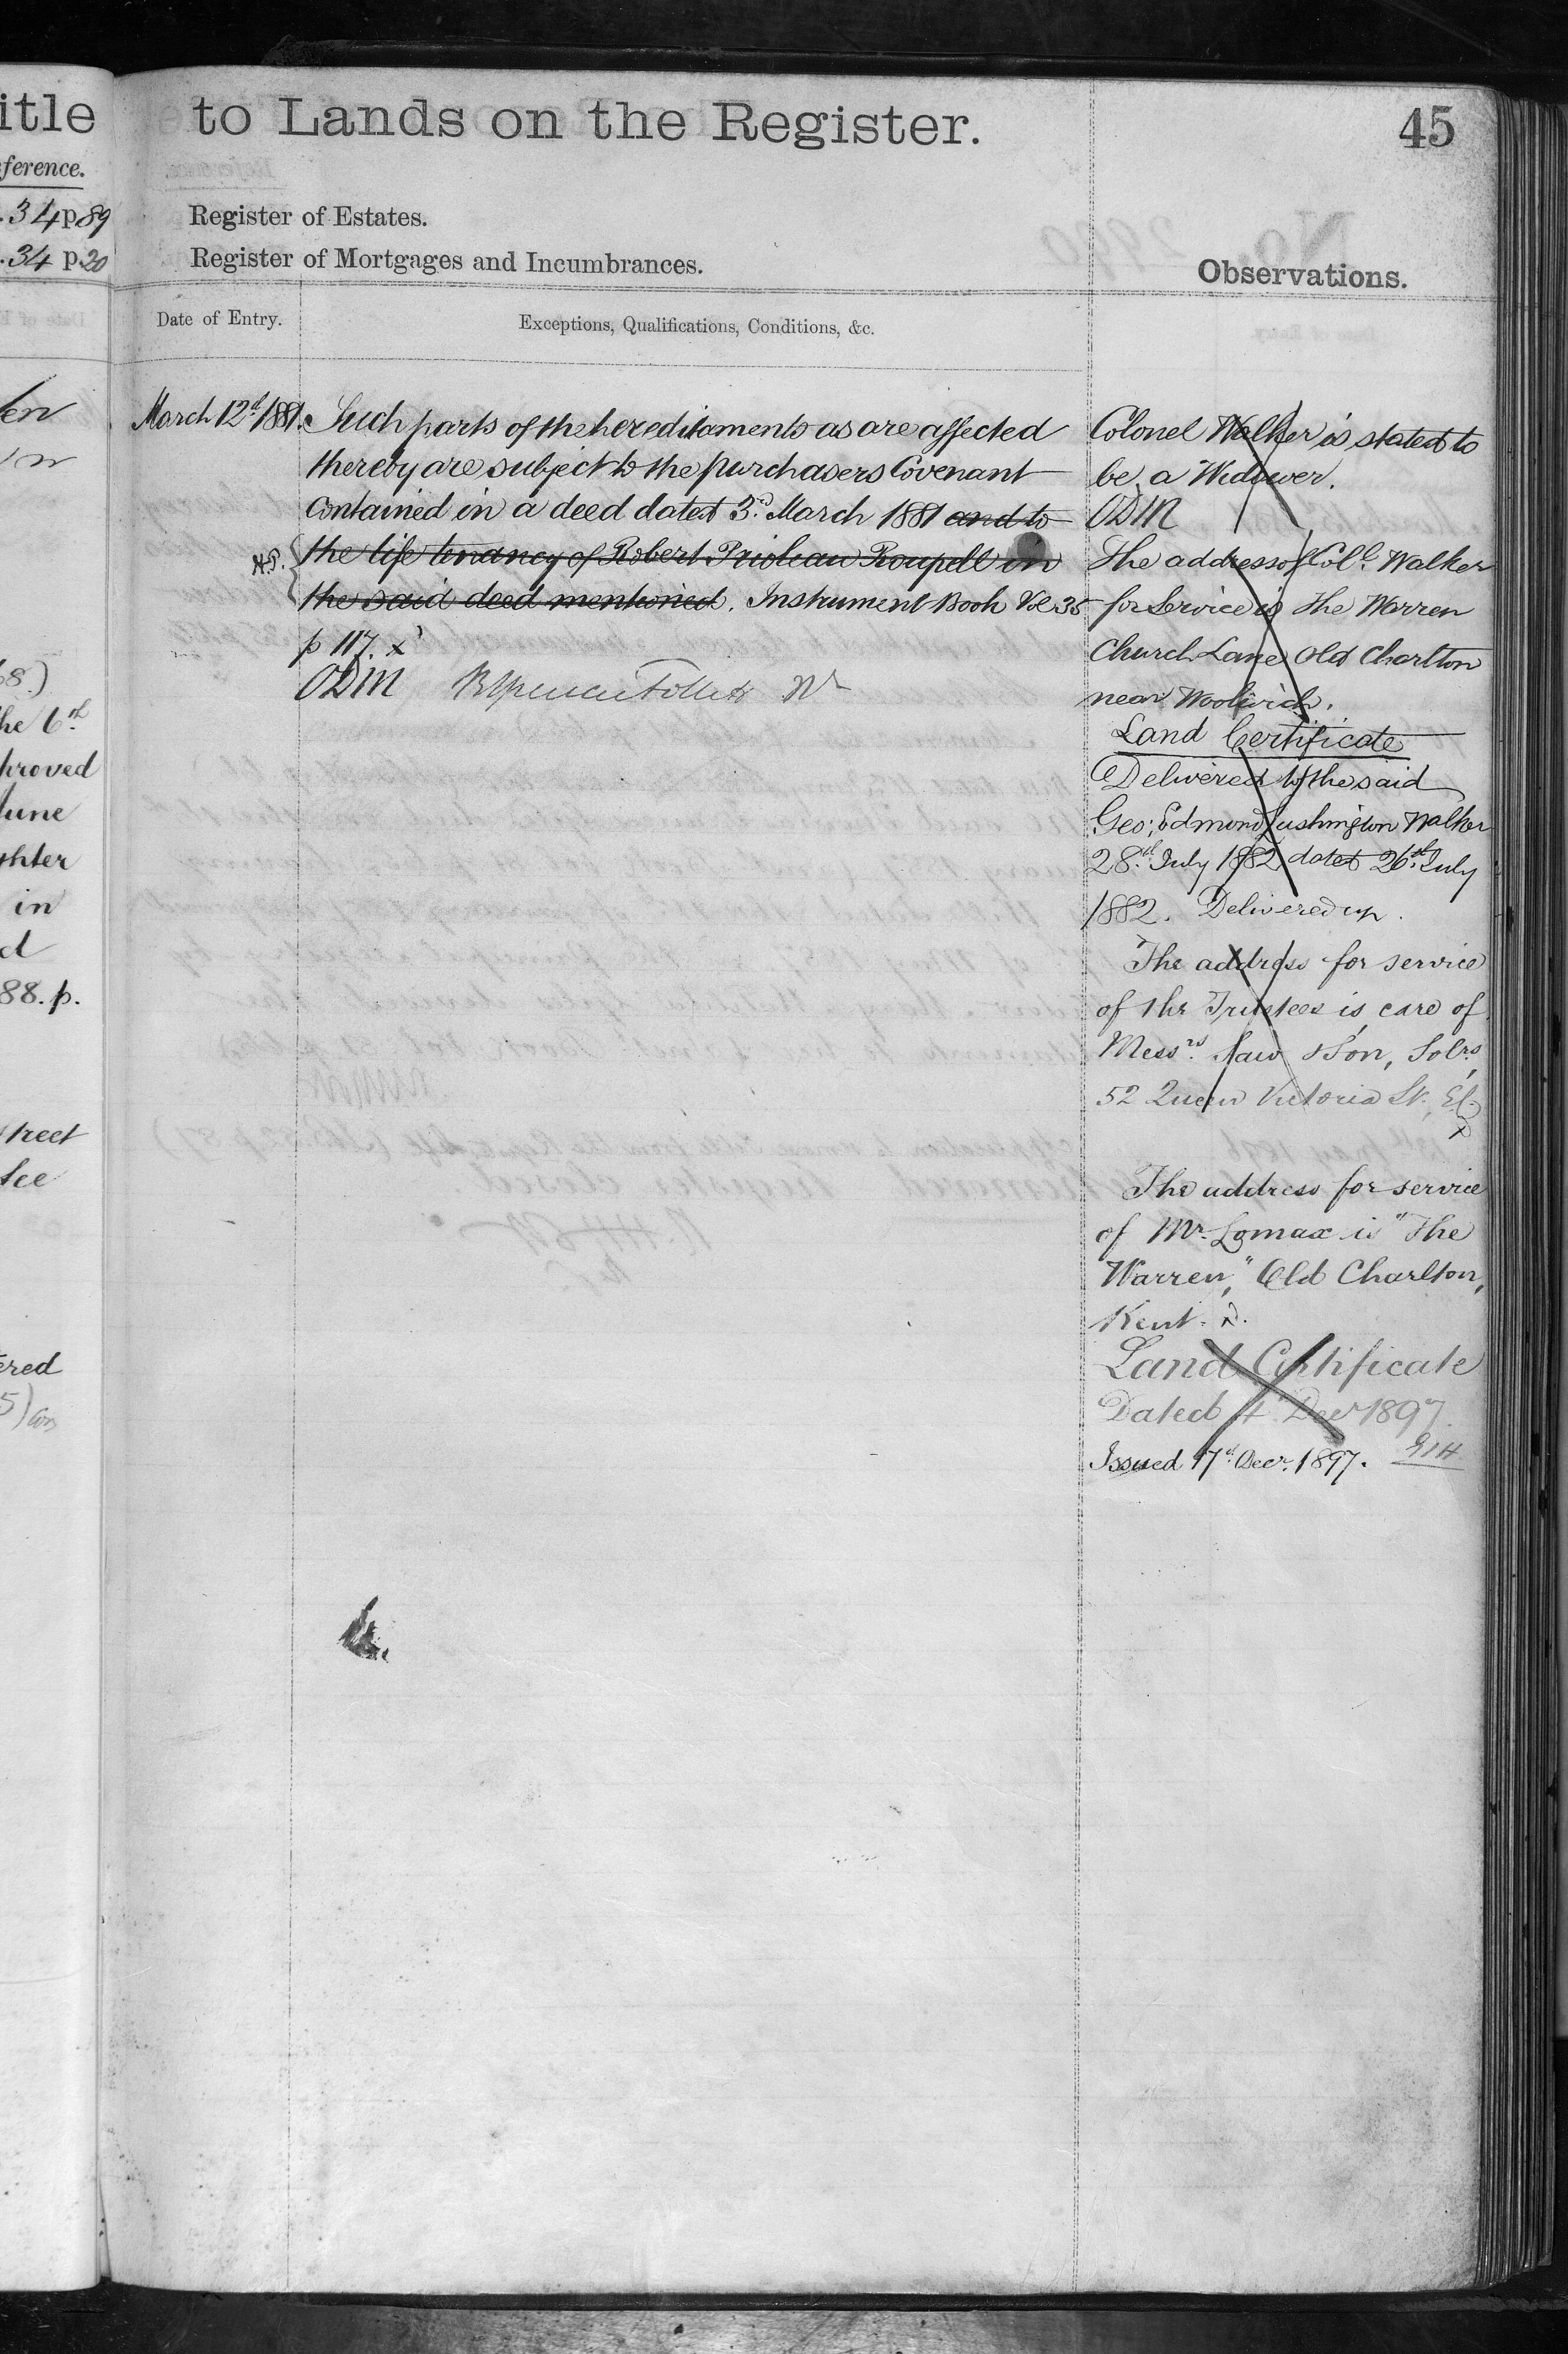 itle
ference.
.34 p 89
.34 p. 20
en
he 6th
proved
June
ghter
in
d
88. p.
treet
ered
to Lands on the Register.
45
Register of Estates.
Register of Mortgages and Incumbrances.
Observations.
Date of Entry.
Exceptions, Qualifications, Conditions, &c.
March 12th 1881.
Such parts of the hereditaments as are affected
thereby are subject to the purchasers Covenant
contained in a deed dated 3rd March 1881 and to
the life tenancy of Robert Prioleau Roupell in
the said deed mentioned. Instrument Book Vol 35
p 117. x
ODM
Colonel Walker is stated to
be a Widower.
ODM
The address of Coll. Walker
for Service is The Warren
Church Lane Old Charlton
near Woolwich.
Land Certificate
Delivered to the said
Geo: Edmond Lushington Walker
28th July 1882 dated 26th July
1882. Delivered up.
The address for service
of the Trustees is care of
Messrs. Saw & Son, Solrs,
52 Queen Victoria St., E.C.
The address for service
of Mr. Lomax is "The
Warren," Old Charlton,
Kent.
Land Certificate
Dated 4 Decr 1897
Issued 17th Decr. 1897.